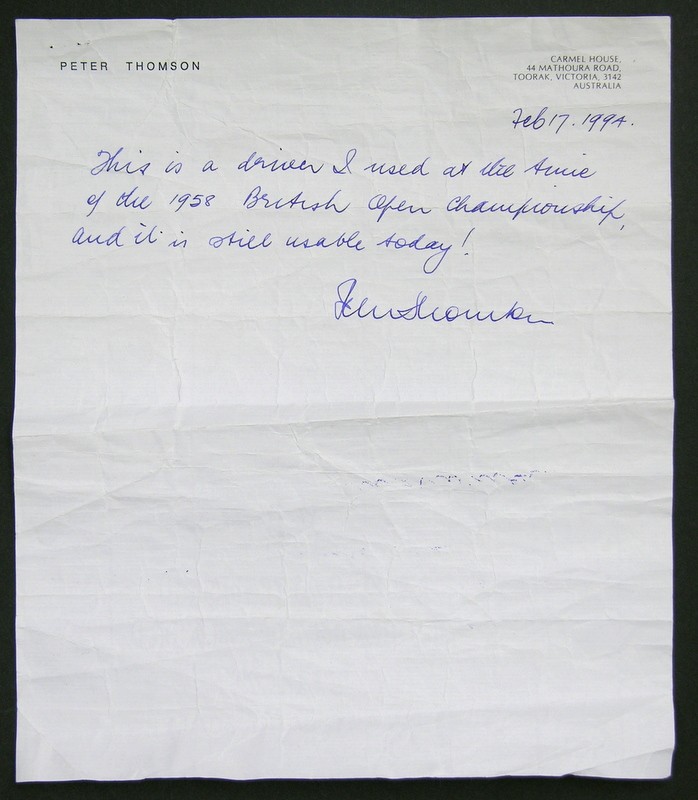 PETER THOMSON
CARMEL HOUSE,
44 MATHOURA ROAD,
TOORAK, VICTORIA, 3142
AUSTRALIA
Feb 17. 1994.
This is a driver I used at the time
of the 1958 British Open Championship,
and it is still usable today!
Peter Thomson